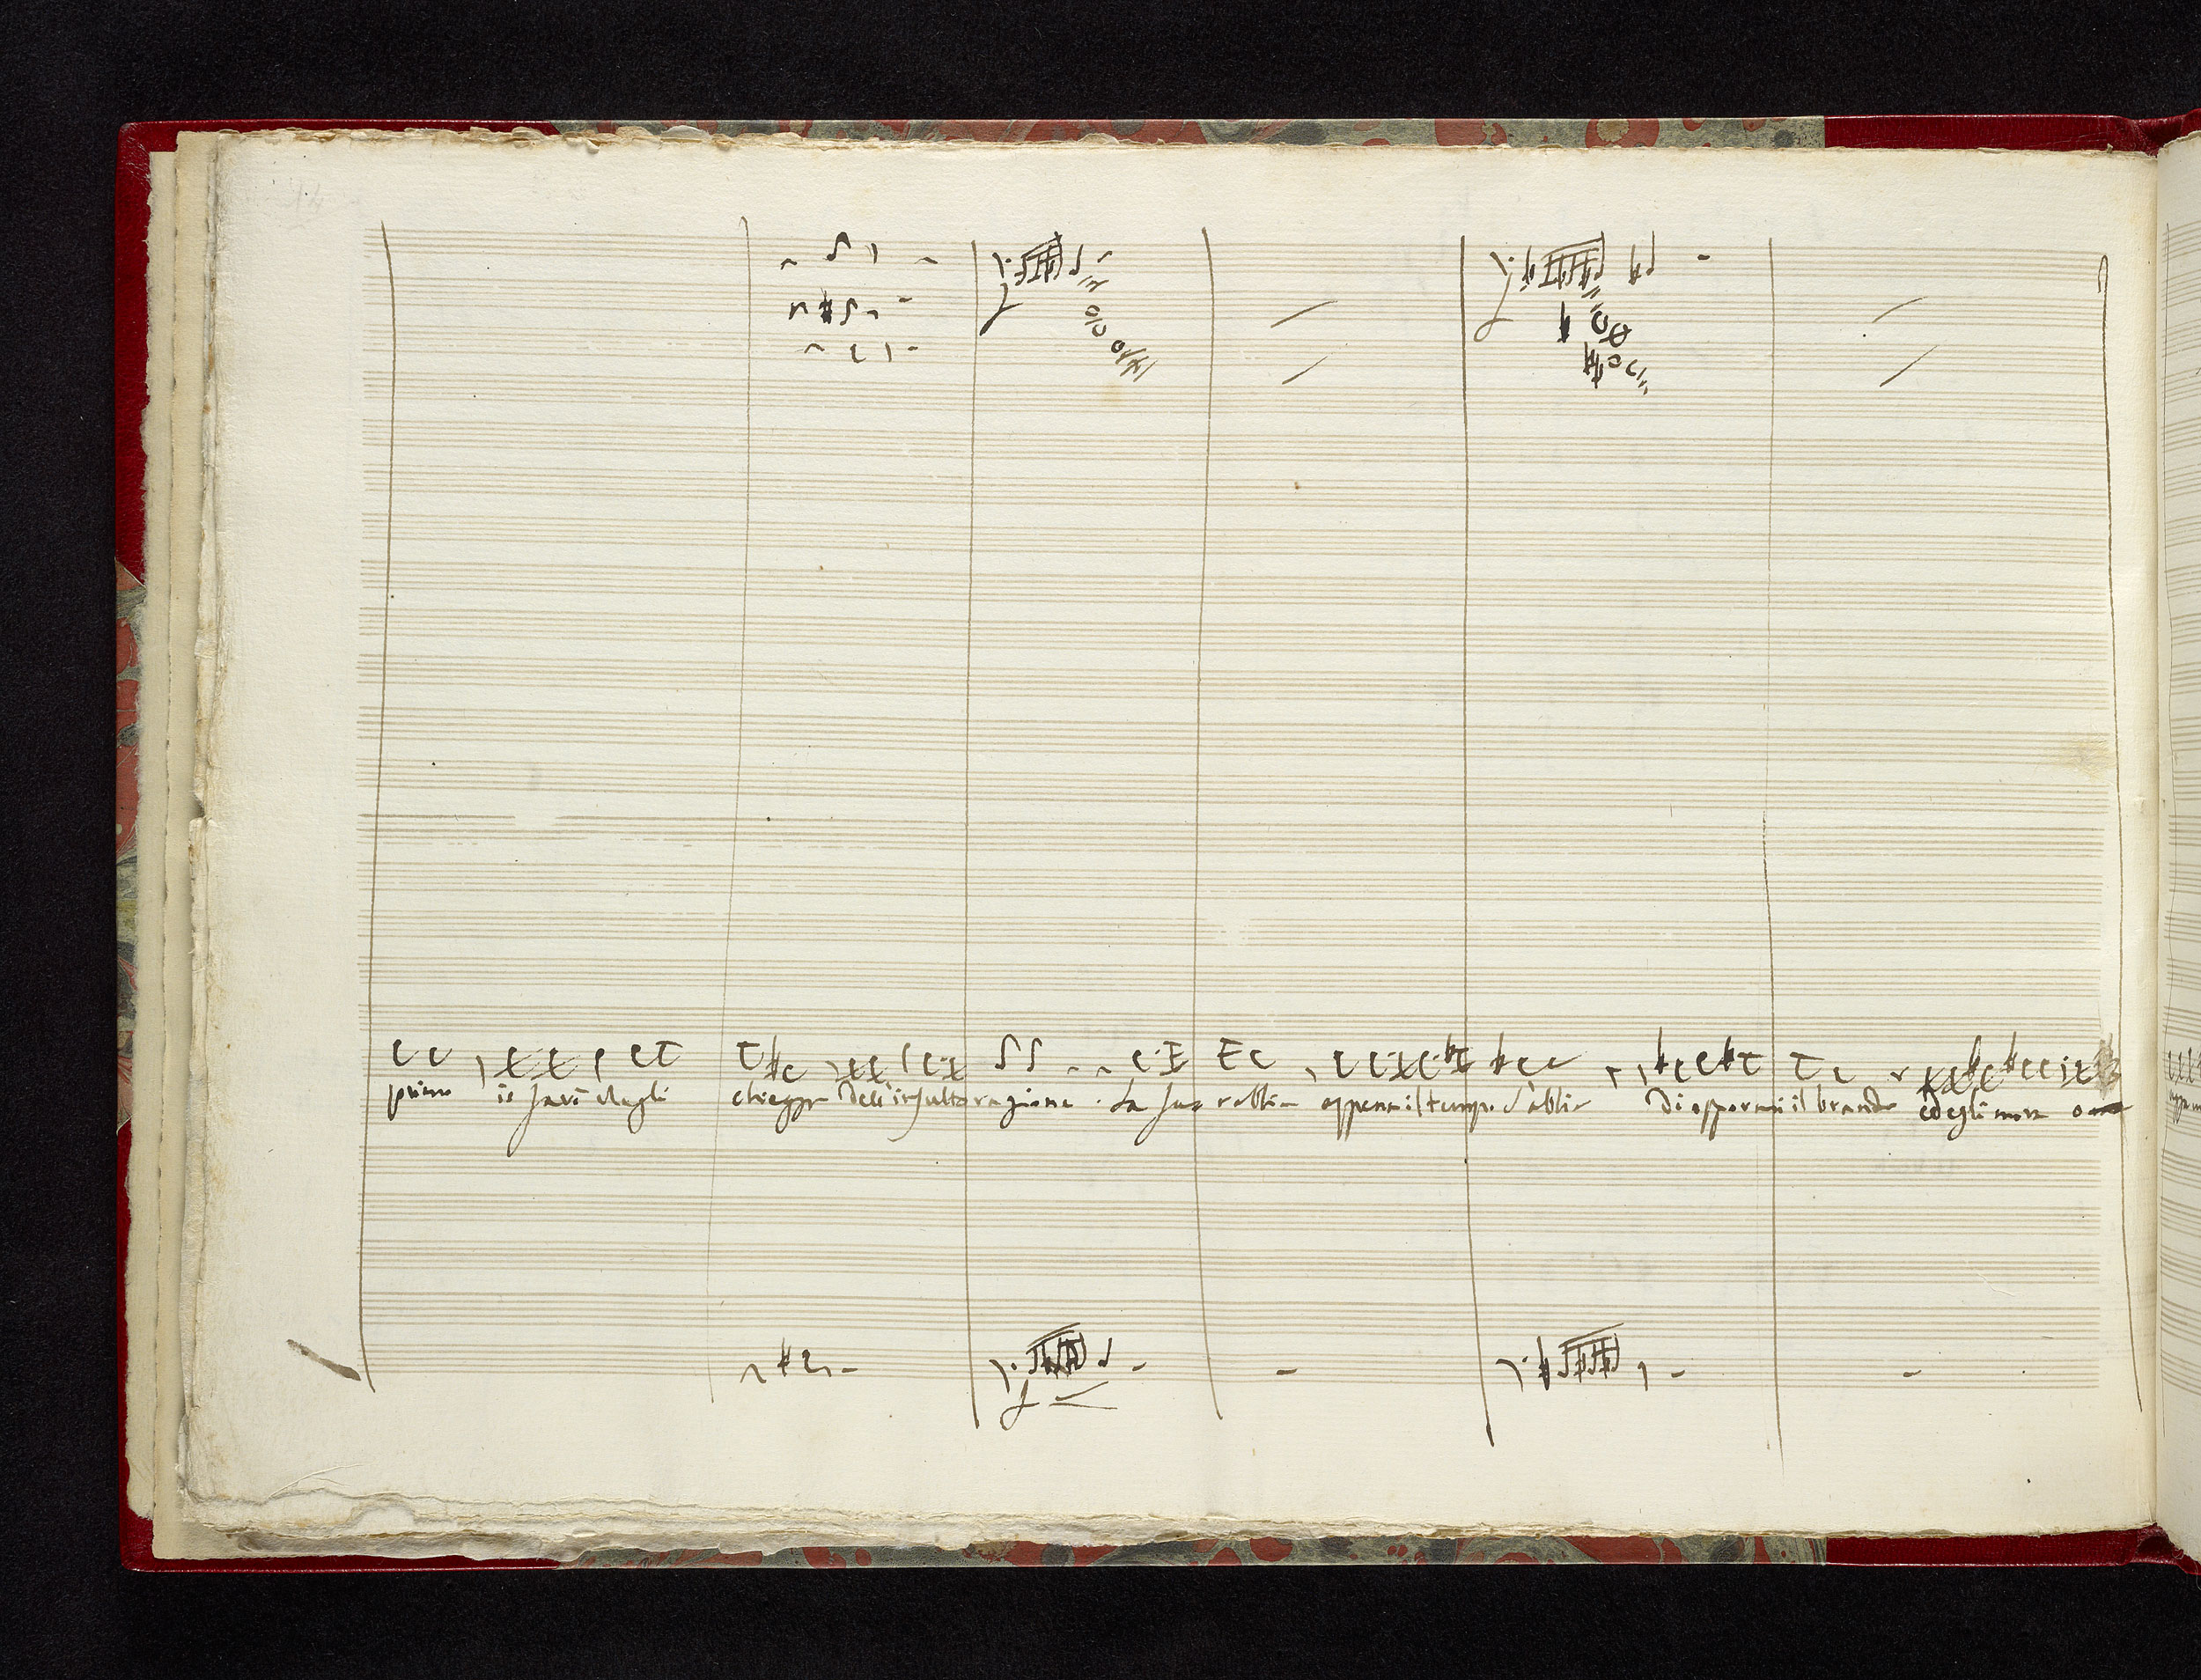 primo io farò degli chieggo Dell'insulto ragione. La sua rabbia appena il tempo d'abbia Di oppormi il brando ed egli mor